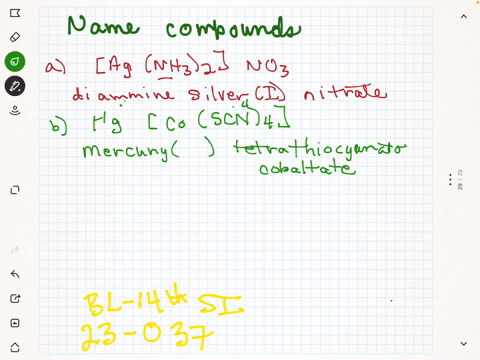 Name compounds
a) [Ag (NH3)2] NO3
diammine silver (I) nitrate
b) Hg [Co (SCN)4]
mercury( ) tetrathiocyanato
cobaltate
BL-14
23-037
28 / 28